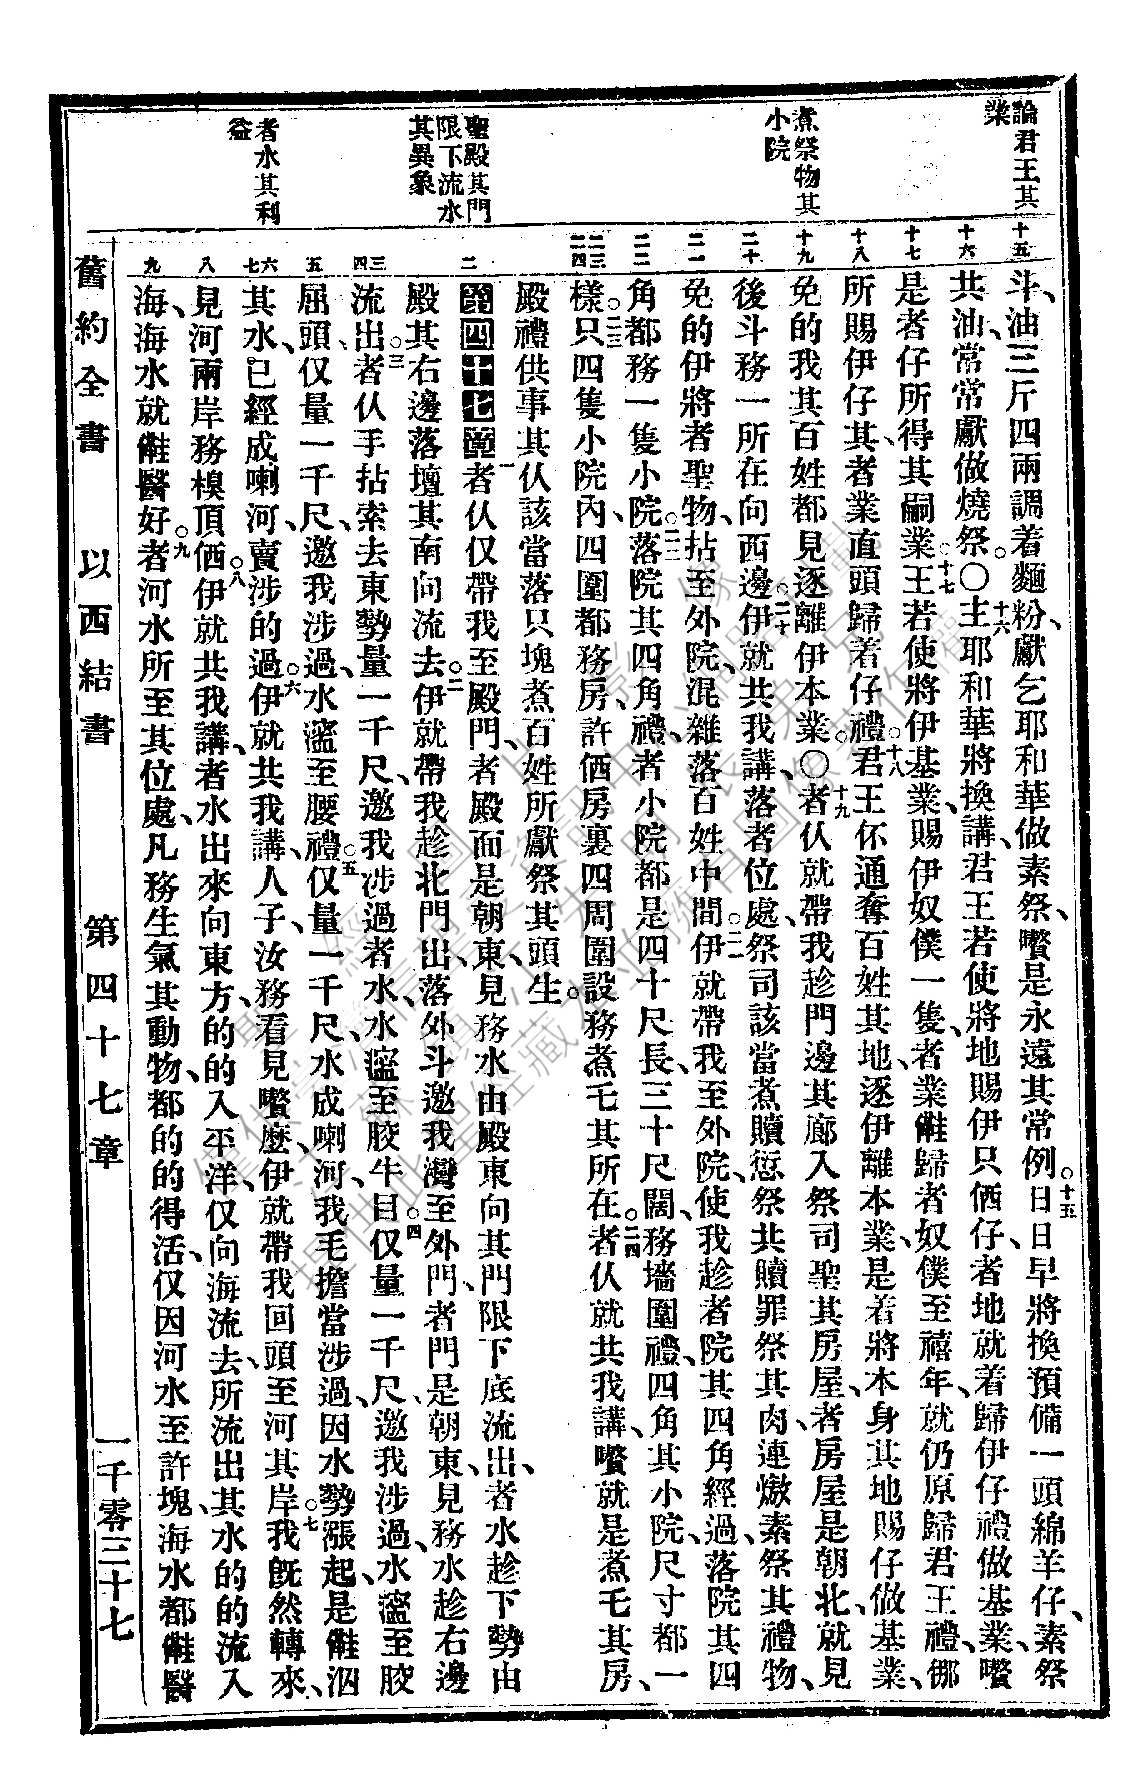 論君王其
業
煮祭物其
小院
聖殿其門
限下流水
其異象
者水其利
益
十五
十六
十七
十八
十九
二十
二一
二二
二三
二四
二
三
四
五
六
七
八
九
斗、油三斤四兩調着麵粉、獻乞耶和華做素祭、嚽是永遠其常例。十五日日早將換預備一頭綿羊仔、素祭
共油、常常獻做燒祭。○十六主耶和華將換講、君王若使將地賜伊只俤仔、者地就着歸伊仔禮做基業、嚽
是者仔所得其嗣業。十七王若使將伊基業、賜伊奴僕一隻、者業𣍐歸者奴僕至禧年、就仍原歸君王禮、㑚
所賜伊仔其者業直頭歸着仔禮。十八君王伓通奪百姓其地、逐伊離本業、是着將本身其地賜仔做基業、
免的我其百姓都見逐離伊本業。○十九者仈就帶我趁門邊其廊入祭司聖其房屋、者房屋是朝北、就見
後斗務一所在向西邊。二十伊就共我講、落者位處、祭司該當煮贖愆祭共贖罪祭其肉、連燉素祭其禮物、
免的伊將者聖物、拈至外院、混雜落百姓中間。二一伊就帶我至外院、使我趁者院其四角經過、落院其四
角都務一隻小院。二二落院其四角禮、者小院都是四十尺長、三十尺闊、務墻圍禮、四角其小院、尺寸都一
樣。二三只四隻小院內、四圍都務房、許俤房裏四周圍設務煮乇其所在。二四者仈就共我講、嚽就是煮乇其房、
殿禮供事其仈該當落只塊煮百姓所獻祭其頭生。
第四十七章一者仈仅帶我至殿門、者殿面是朝東、見務水由殿東向其門限下底流出、者水趁下勢由
殿其右邊落壇其南向流去。二伊就帶我趁北門出、落外斗邀我灣至外門、者門是朝東、見務水趁右邊
流出。三者仈手拈索去東勢量一千尺、邀我涉過者水、水𣹢至骹牛目。四仅量一千尺、邀我涉過、水𣹢至骹
屈頭、仅量一千尺、邀我涉過、水𣹢至腰禮。五仅量一千尺、水成喇河、我乇擔當涉過、因水勢漲起、是𣍐泅
其水、已經成喇河、賣涉的過。六伊就共我講、人子、汝務看見嚽麽、伊就帶我回頭至河其岸。七我旣然轉來、
見河兩岸務樹頂俤。八伊就共我講、者水出來向東方的的入平洋、仅向海流去、所流出其水的的流入
海、海水就𣍐醫好。九者河水所至其位處、凡務生氣其動物、都的的得活、仅因河水至許塊、海水都𣍐醫
舊約全書　以西結書　第四十七章　一千零三十七